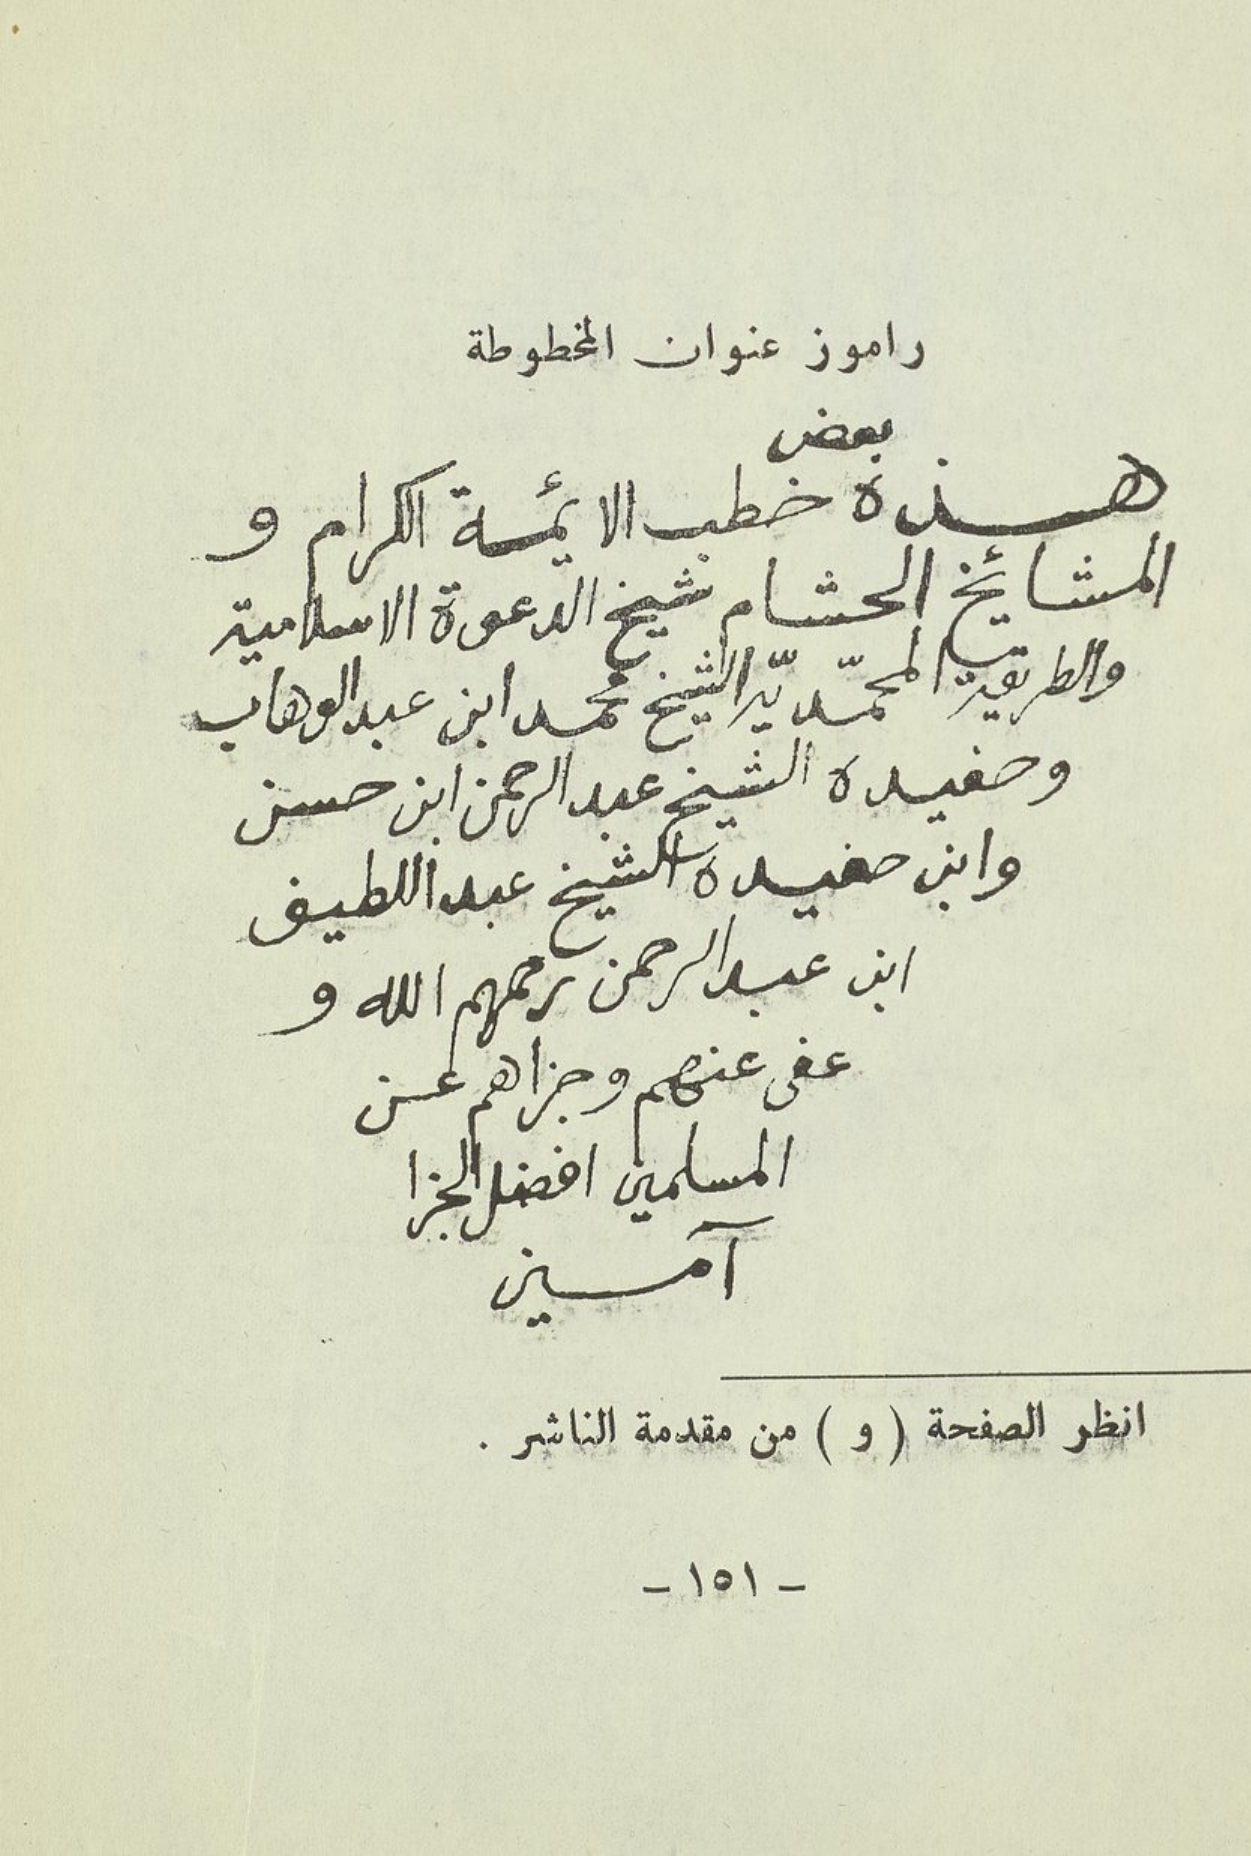 راموز عنوان المخطوطة
بعض
هذه خطب الائمة الكرام و
المشائخ الحشام شيخ الدعوة الاسلامية
والطريقة المحمّديّة الشيخ محمد ابن عبدالوهاب
وحفيده الشيخ عبدالرحمن ابن حسن
وابن حفيده الشيخ عبداللطيف
ابن عبدالرحمن رحمهم الله و
عفى عنهم وجزاهم عن
المسلمين افضل الجزا
آمين
انظر الصفحة ( و ) من مقدمة الناشر .
- ١٥١ -